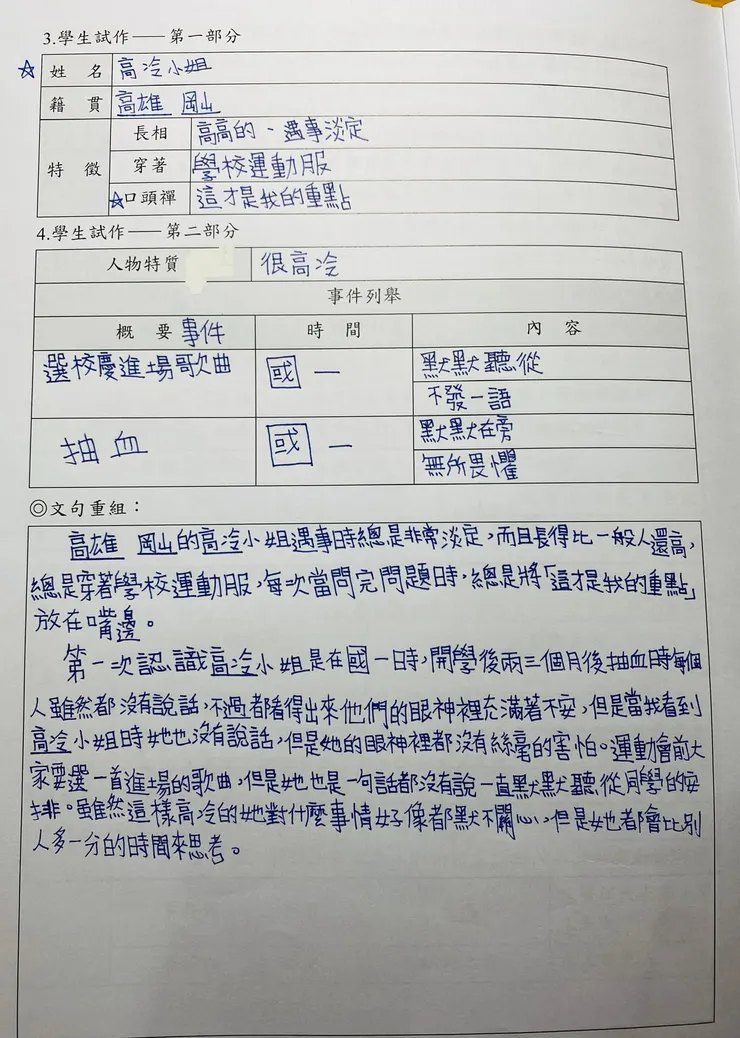 3.學生試作——第一部分
☆ 姓名 高冷小姐
籍貫 高雄 岡山
特徵 長相 高高的、遇事淡定
穿著 學校運動服
☆口頭禪 這才是我的重點
4.學生試作——第二部分
人物特質 很高冷
事件列舉
概要事件 時間 內容
選校慶進場歌曲 國一 默默聽從
不發一語
抽血 國一 默默在旁
無所畏懼
◎文句重組：
高雄 岡山的高冷小姐遇事時總是非常淡定，而且長得比一般人還高，
總是穿著學校運動服，每次當問完問題時，總是將「這才是我的重點」
放在嘴邊。
第一次認識高冷小姐是在國一時，開學後兩三個月後抽血時每個
人雖然都沒有說話，不過都看得出來他們的眼神裡充滿著不安，但是當我看到
高冷小姐時她也沒有說話，但是她的眼神裡都沒有絲毫的害怕。運動會前大
家要選一首進場的歌曲，但是她也是一句話都沒有說一直默默聽從同學的安
排。雖然這樣高冷的她對什麼事情好像都默不關心，但是她都會比別
人多一分的時間來思考。